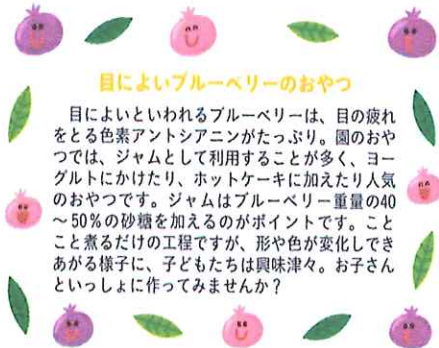 目によいブルーベリーのおやつ
目によいといわれるブルーベリーは、目の疲れ
をとる色素アントシアニンがたっぷり。園のおや
つでは、ジャムとして利用することが多く、ヨー
グルトにかけたり、ホットケーキに加えたり人気
のおやつです。ジャムはブルーベリー重量の40
～50％の砂糖を加えるのがポイントです。こと
こと煮るだけの工程ですが、形や色が変化しでき
あがる様子に、子どもたちは興味津々。お子さん
といっしょに作ってみませんか？